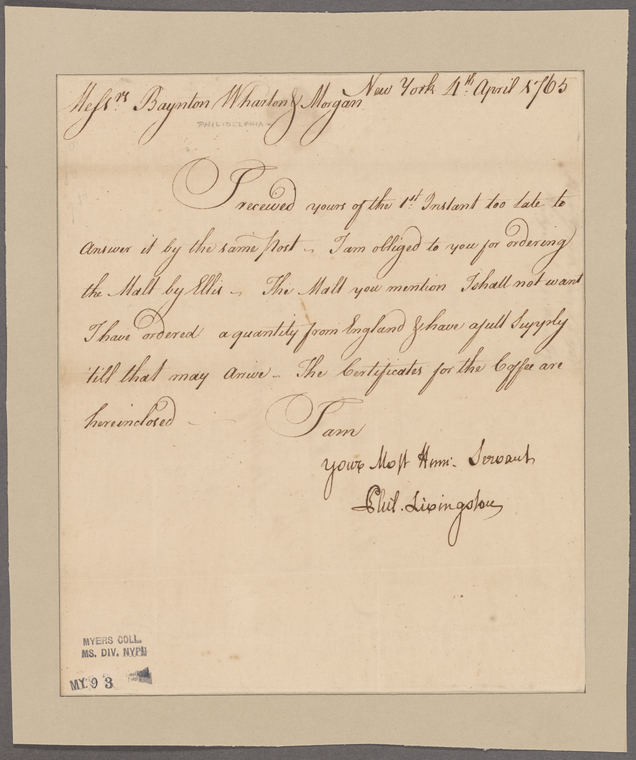 New York 4th. April 1765
Messrs. Baynton Wharton & Morgan
PHILIDELPHIA
I received yours of the 1st. Instant too late to
Answer it by the same post - I am obliged to you for ordering
the Malt by Ellis - The Malt you mention I shall not want
I have ordered a quantity from England & have a full Supply
'till that may Arive - The Certificates for the Coffee are
hereinclosed -
I am
Your Most Hum. Servant
Phil. Livingston
MYERS COLL.
MS. DIV. NYPL
MY. 9 3